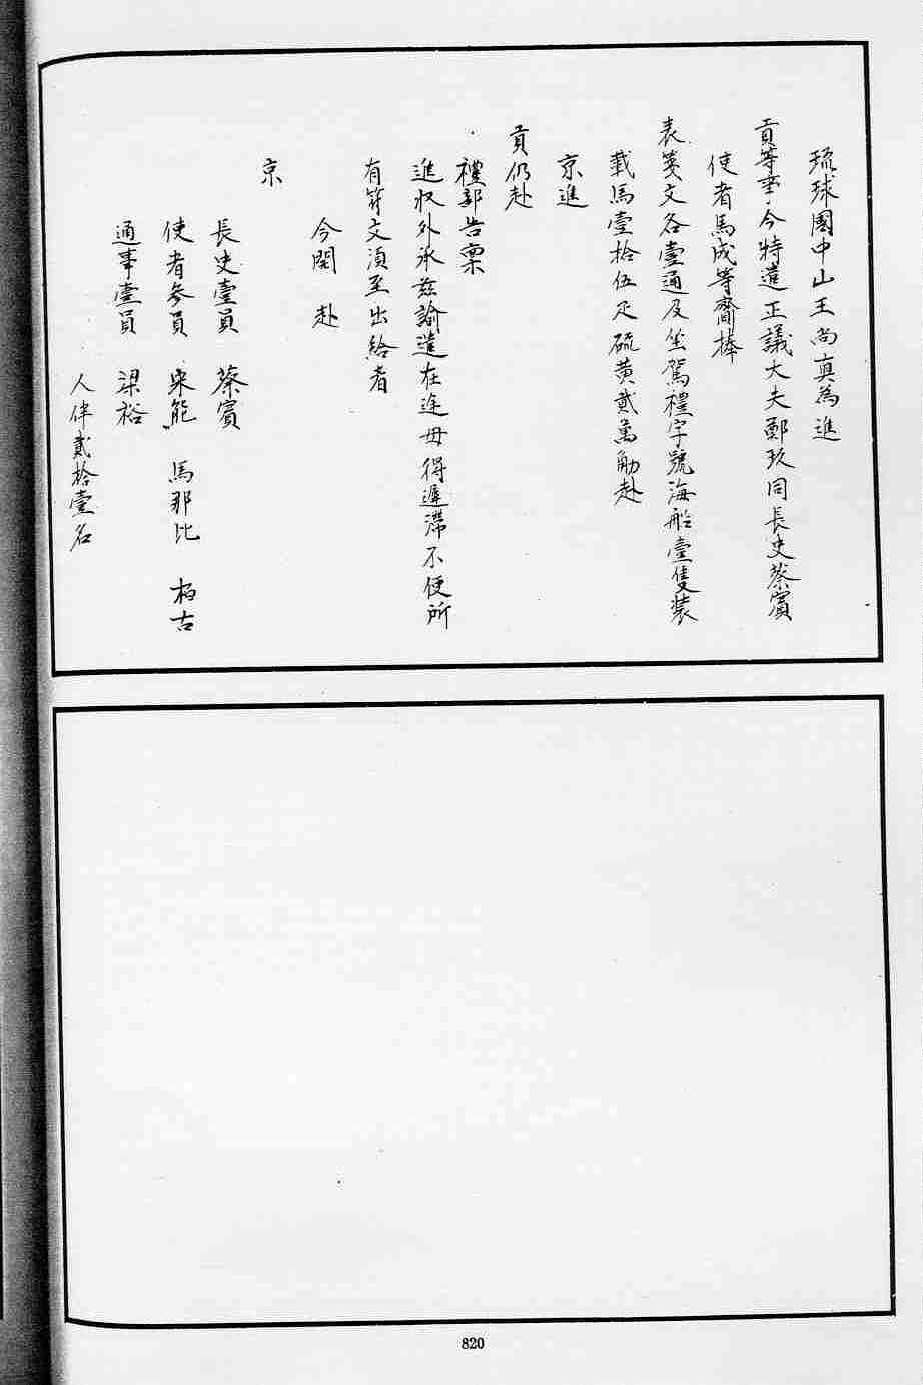 琉球國中山王尚真為進
貢等事今特遣正議大夫鄭玖同長史蔡賓
使者馬成等齎捧
表箋文各壹通及坐駕禮字號海船壹隻裝
載馬壹拾伍疋硫黄貳萬觔赴
京進
貢仍赴
禮部告稟
進収外承茲諭遣在途毋得遲滯不便所
有符文須至出給者
今開赴
京
長史壹員 蔡賓
使者叁員 宋能 馬那比 栢古
通事壹員 梁裕
人伴貳拾壹名
820